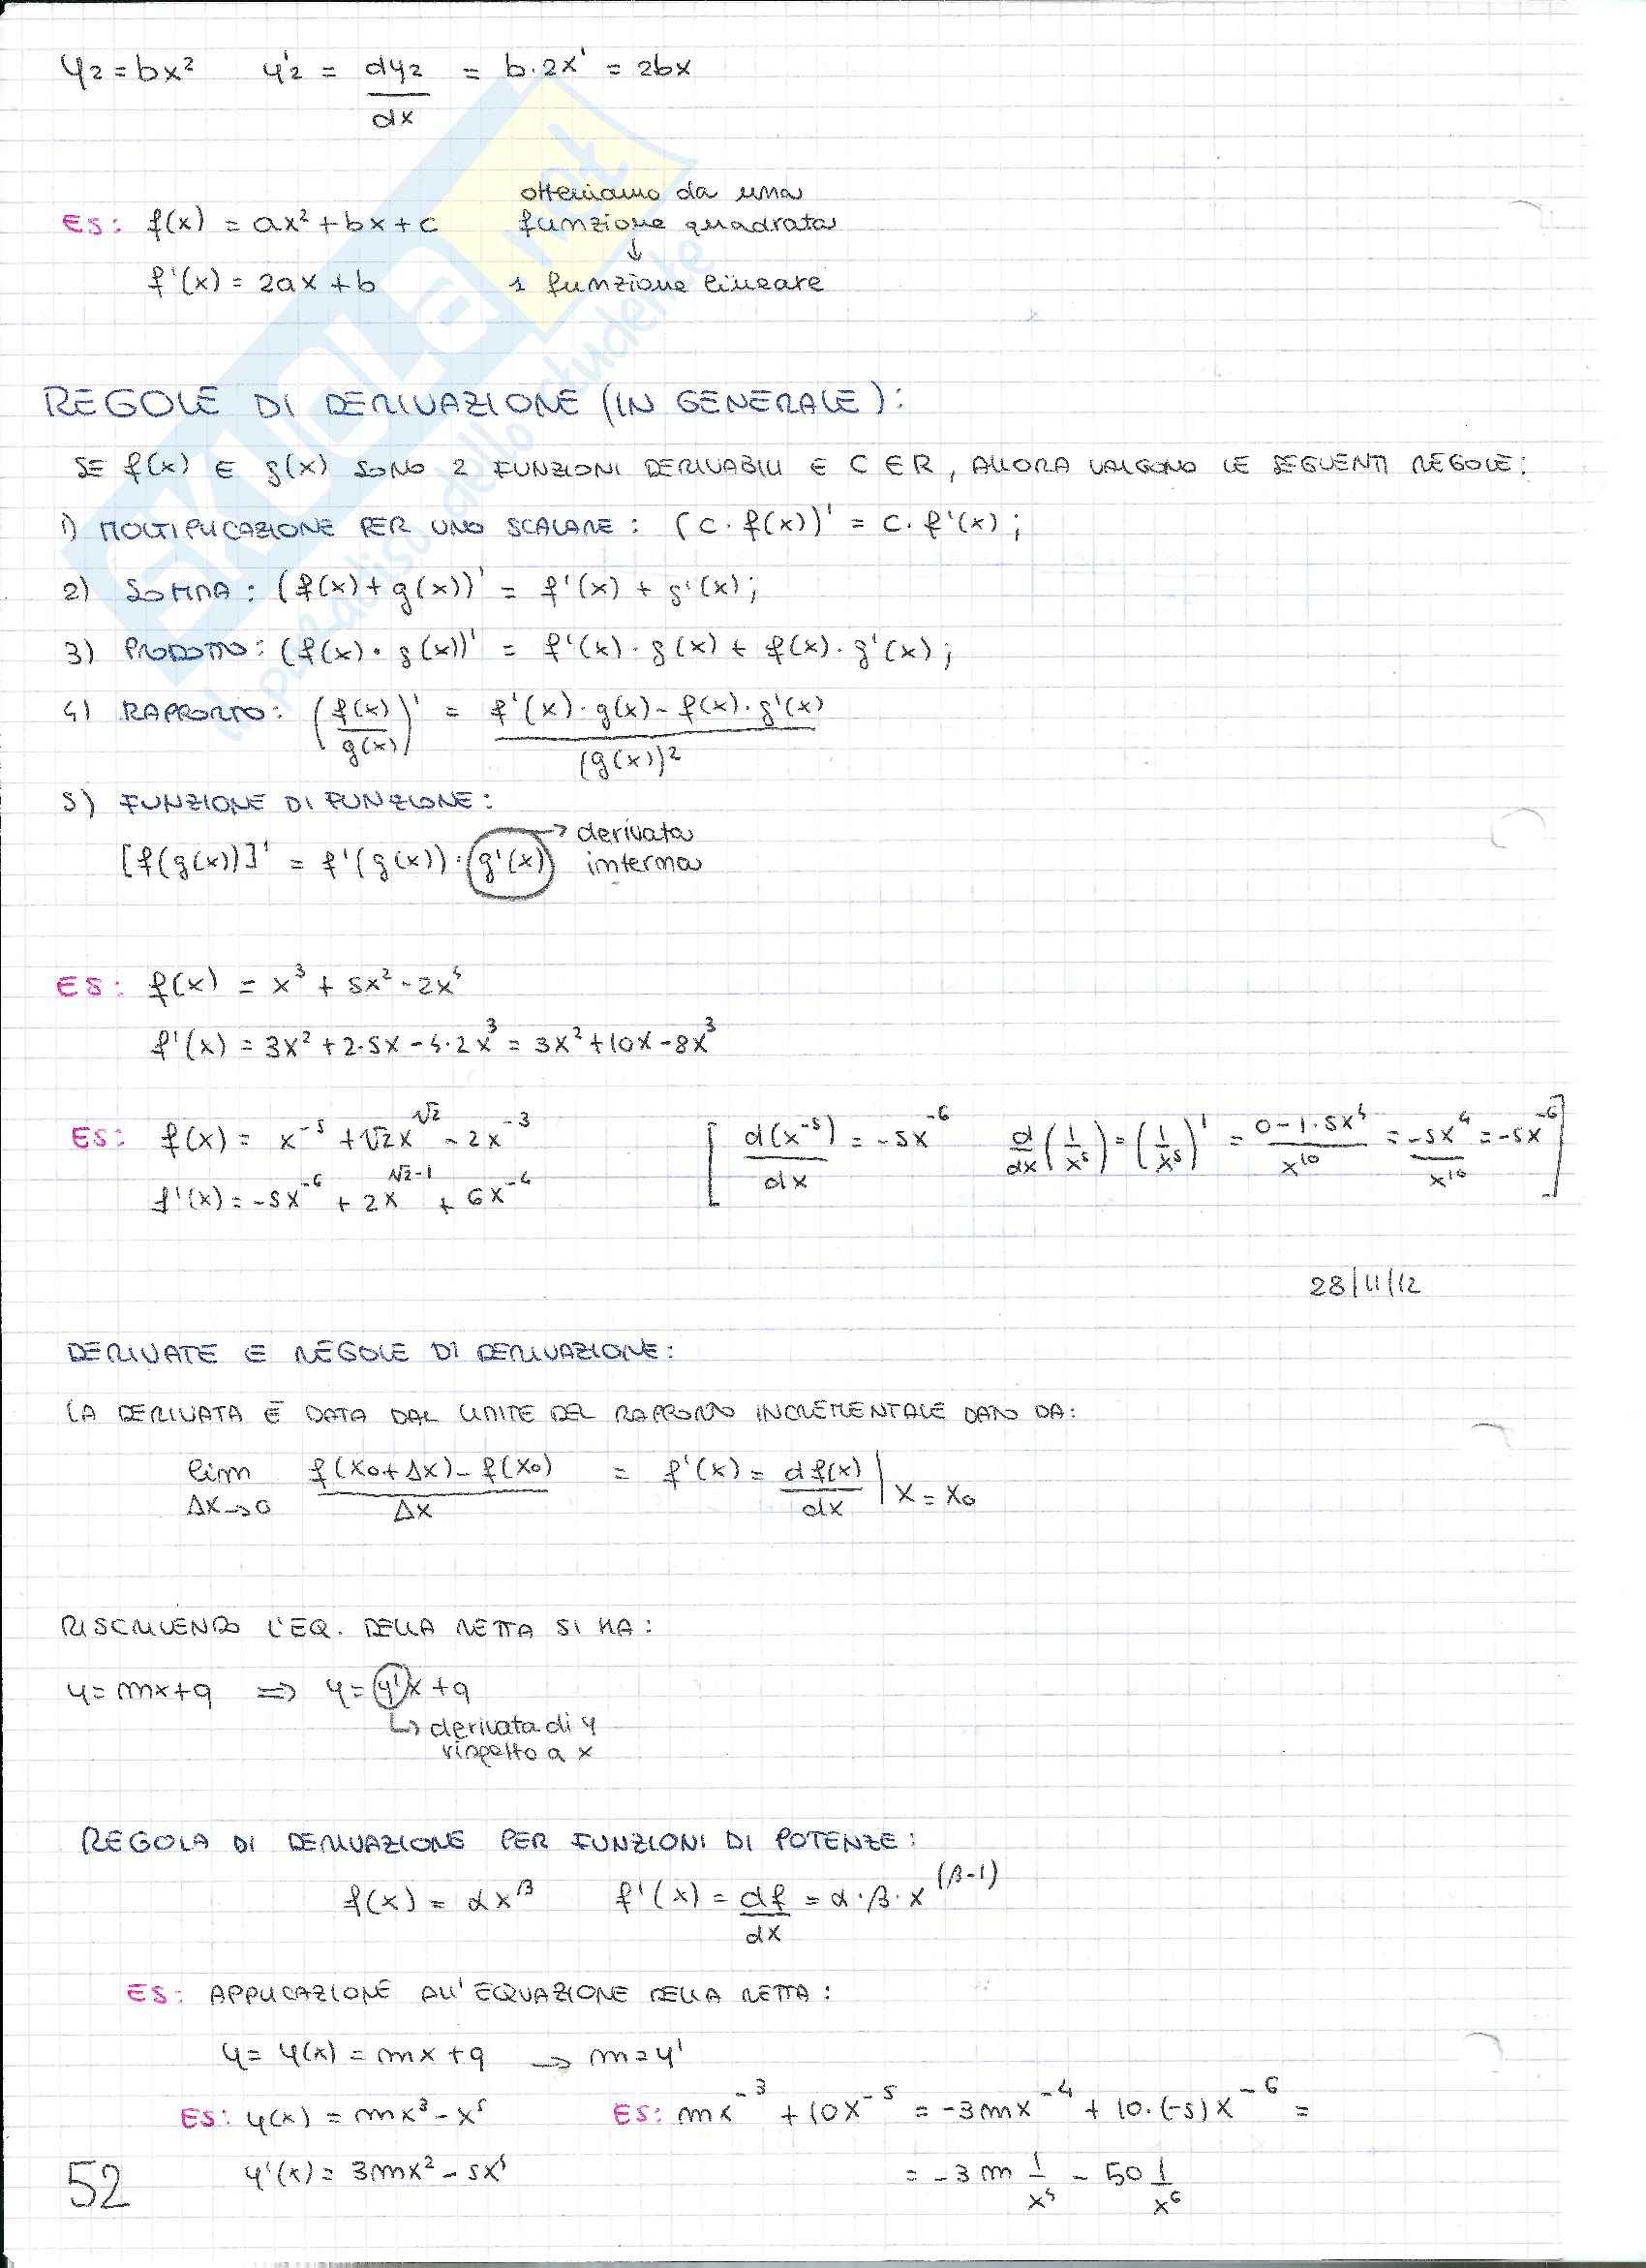 y₂ = bx² y'₂ = dy₂/dx = b·2x' = 2bx
otteniamo da una
ES: f(x) = ax² + bx + c funzione quadrata
↓
f'(x) = 2ax + b 1 funzione lineare
REGOLE DI DERIVAZIONE (IN GENERALE):
SE f(x) E g(x) SONO 2 FUNZIONI DERIVABILI E C ∈ R, ALLORA VALGONO LE SEGUENTI REGOLE:
1) MOLTIPLICAZIONE PER UNO SCALARE: (c·f(x))' = c·f'(x);
2) SOMMA: (f(x)+g(x))' = f'(x) + g'(x);
3) PRODOTTO: (f(x)·g(x))' = f'(x)·g(x) + f(x)·g'(x);
4) RAPPORTO: (f(x)/g(x))' = f'(x)·g(x) - f(x)·g'(x) / (g(x))²
5) FUNZIONE DI FUNZIONE:
[f(g(x))]' = f'(g(x))·g'(x) → derivata interna
ES: f(x) = x³ + 5x² - 2x⁴
f'(x) = 3x² + 2·5x - 4·2x³ = 3x² + 10x - 8x³
ES: f(x) = x⁻⁵ + √2x^√2 - 2x⁻³ [d(x⁻⁵)/dx = -5x⁻⁶ d/dx(1/x⁵) = (1/x⁵)' = 0-1·5x⁴/x¹⁰ = -5x⁴/x¹⁰ = -5x⁻⁶]
f'(x) = -5x⁻⁶ + 2x^(√2-1) + 6x⁻⁴
28/11/12
DERIVATE E REGOLE DI DERIVAZIONE:
LA DERIVATA È DATA DAL LIMITE DEL RAPPORTO INCREMENTALE DATO DA:
lim Δx→0 f(x₀+Δx) - f(x₀) / Δx = f'(x) = df(x)/dx | x = x₀
RISCRIVENDO L'EQ. DELLA RETTA SI HA:
y = mx+q ⇒ y = y'x+q
↳ derivata di y
rispetto a x
REGOLA DI DERIVAZIONE PER FUNZIONI DI POTENZE:
f(x) = αx^β f'(x) = df/dx = α·β·x^(β-1)
ES: APPLICAZIONE ALL'EQUAZIONE DELLA RETTA:
y = y(x) = mx+q → m = y'
ES: y(x) = mx³ - x⁵ ES: mx⁻³ + 10x⁻⁵ = -3mx⁻⁴ + 10·(-5)x⁻⁶ =
y'(x) = 3mx² - 5x⁴ = -3m 1/x⁴ - 50 1/x⁶
52
SKUOLA.net
il paradiso dello studente